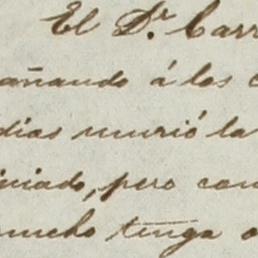 El Dr. Carr
añando á los c
dias murió la
iciado, pero com
mucho tenga o